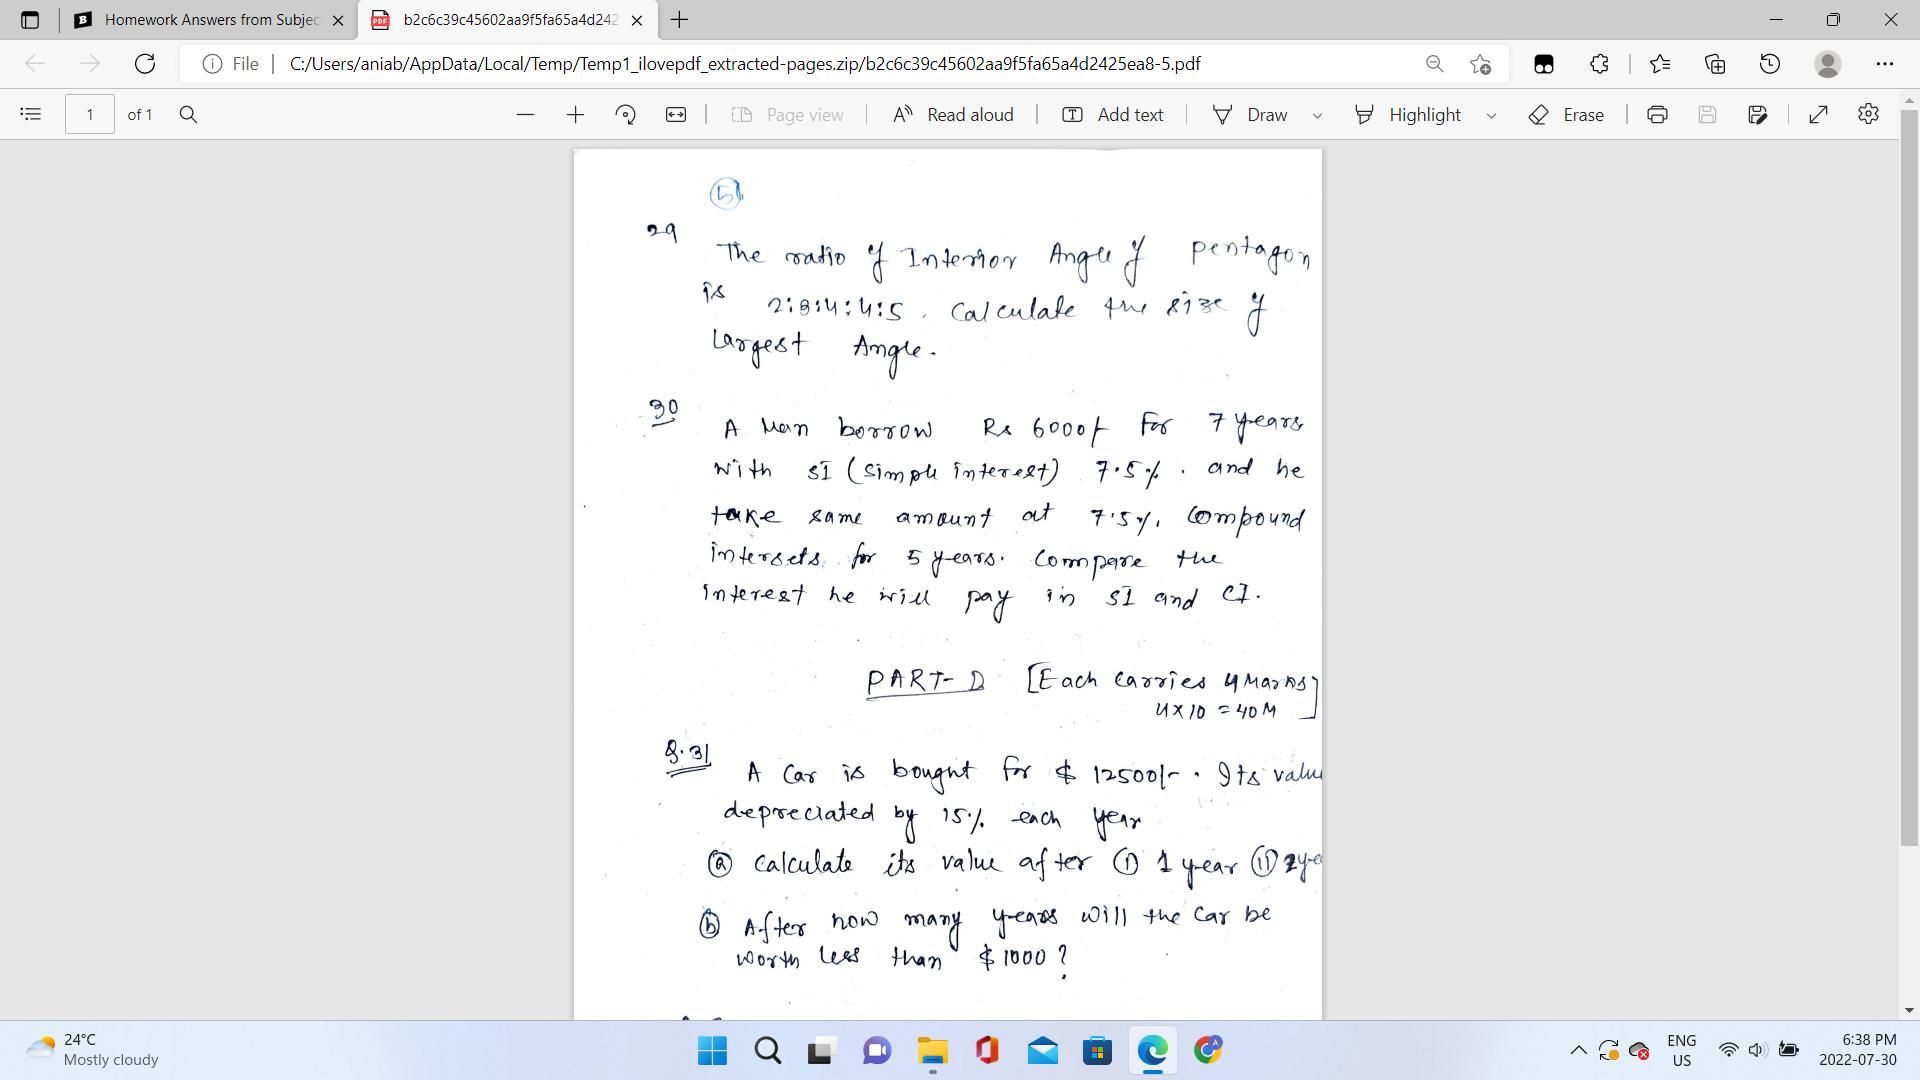 Homework Answers from Subjec
b2c6c39c45602aa9f5fa65a4d242
File
C:/Users/aniab/AppData/Local/Temp/Temp1_ilovepdf_extracted-pages.zip/b2c6c39c45602aa9f5fa65a4d2425ea8-5.pdf
1 of 1
Page view
Read aloud
Add text
Draw
Highlight
Erase
5
29
The ratio of Interior Angle of pentagon
is 2:3:4:4:5. Calculate the size of
Largest Angle.
30
A Man borrow Rs 6000/- For 7 years
with SI (simple interest) 7.5%. and he
take same amount at 7.5%. compound
intersets for 5 years. Compare the
interest he will pay in SI and CI.
PART-D [Each carries 4 Marks]
4x10 = 40M
Q.31
A Car is bought for $ 12500/-. Its value
depreciated by 15% each year
(a) calculate its value after (i) 1 year (ii) 2 ye
(b) After how many years will the car be
worth less than $ 1000?
24°C
Mostly cloudy
ENG
US
6:38 PM
2022-07-30